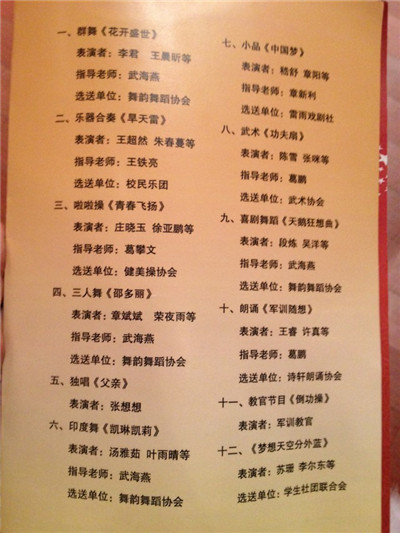 一、群舞《花开盛世》
表演者：李君 王晨昕等
指导老师：武海燕
选送单位：舞韵舞蹈协会
二、乐器合奏《旱天雷》
表演者：王超然 朱春蔓等
指导老师：王铁亮
选送单位：校民乐团
三、啦啦操《青春飞扬》
表演者：庄晓玉 徐亚鹏等
指导老师：葛攀文
选送单位：健美操协会
四、三人舞《邵多丽》
表演者：章斌斌 荣夜雨等
指导老师：武海燕
选送单位：舞韵舞蹈协会
五、独唱《父亲》
表演者：张想想
六、印度舞《凯琳凯莉》
表演者：汤雅茹 叶雨晴等
指导老师：武海燕
选送单位：舞韵舞蹈协会
七、小品《中国梦》
表演者：嵇舒 章阳等
指导老师：章新利
选送单位：雷雨戏剧社
八、武术《功夫扇》
表演者：陈雪 张咪等
指导老师：葛鹏
选送单位：武术协会
九、喜剧舞蹈《天鹅狂想曲》
表演者：段炼 吴洋等
指导老师：武海燕
选送单位：舞韵舞蹈协会
十、朗诵《军训随想》
表演者：王睿 许真等
指导老师：葛鹏
选送单位：诗轩朗诵协会
十一、教官节目《倒功操》
表演者：军训教官
十二、《梦想天空分外蓝》
表演者：苏珊 李尔东等
选送单位：学生社团联合会